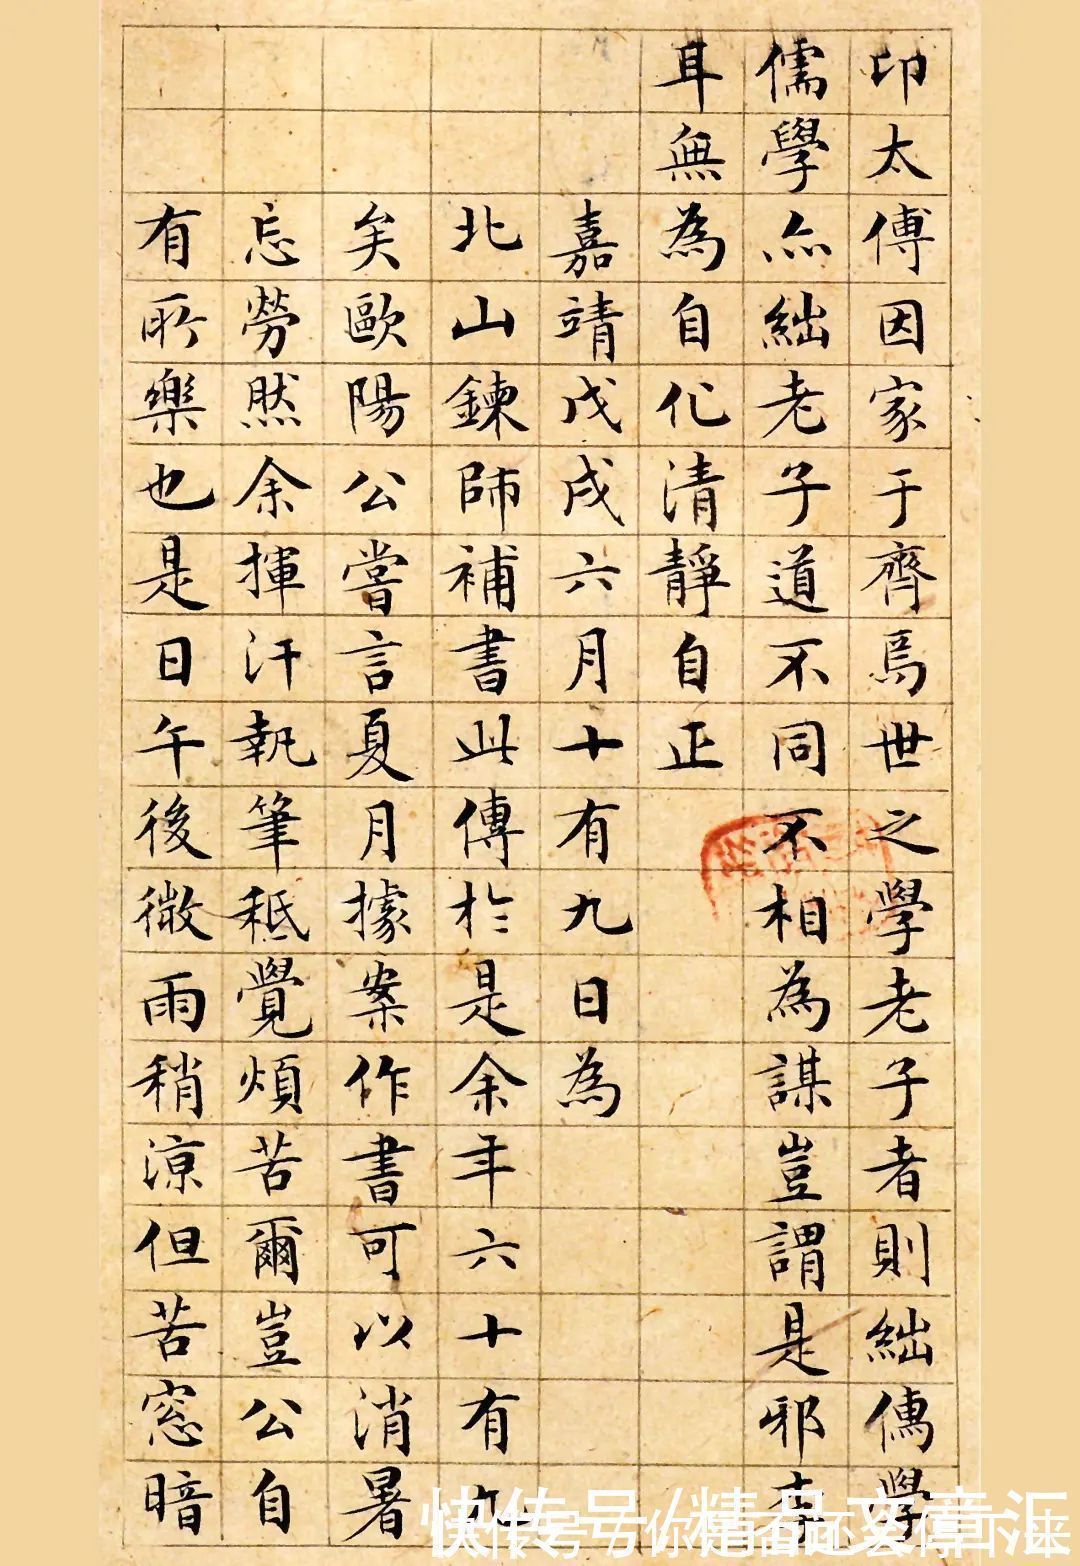 卬太傅因家于齊焉世之學老子者則絀儒學
儒學亦絀老子道不同不相為謀豈謂是邪李
耳無為自化清靜自正
嘉靖戊戌六月十有九日為
北山鍊師補書此傳於是余年六十有九
矣歐陽公嘗言夏月據案作書可以消暑
忘勞然余揮汗執筆秖覺煩苦爾豈公自
有所樂也是日午後微雨稍涼但苦窓暗
快传号/精品文章汇